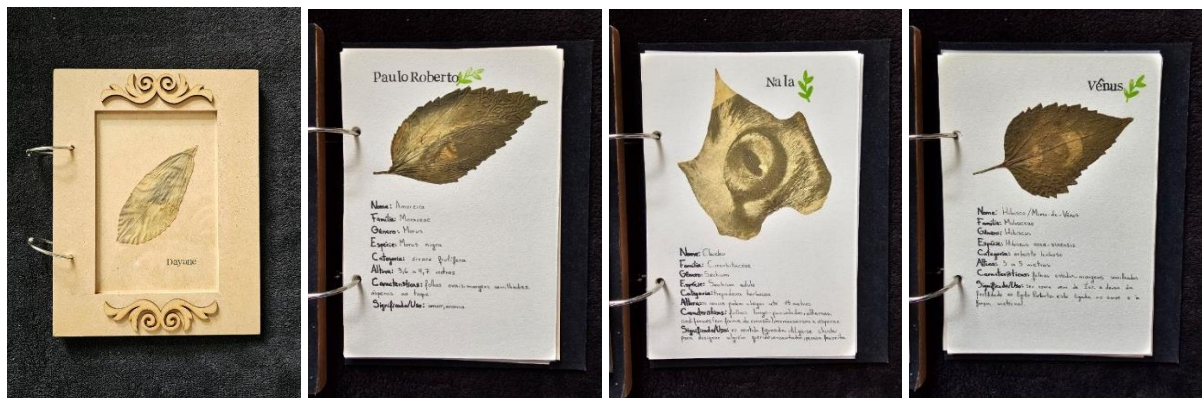 Dayane
Paulo Roberto
Nome: Amoreira
Família: Moraceae
Gênero: Morus
Espécie: Morus nigra
Categoria: árvore frutífera
Altura: 3,6 a 4,7 metros
Características: folhas ovais, margens serrilhadas
ásperas ao toque
Significado/Uso:
Nala
Nome: Chuchu
Família: Cucurbitaceae
Gênero: Sechium
Espécie: Sechium edule
Categoria: trepadeira herbácea
Altura: os ramos podem chegar até 15 metros
Características: folhas
Significado/Uso: no sentido figurado
para designar alguém
Vênus
Nome: Hibisco/Mimo-de-Vênus
Família: Malvaceae
Gênero: Hibiscus
Espécie: Hibiscus rosa-sinensis
Categoria: arbusto lenhoso
Altura: 3 a 5 metros
Características: folhas ovadas, margens serrilhadas
Significado/Uso: Seu nome vem de Ísis, a deusa da